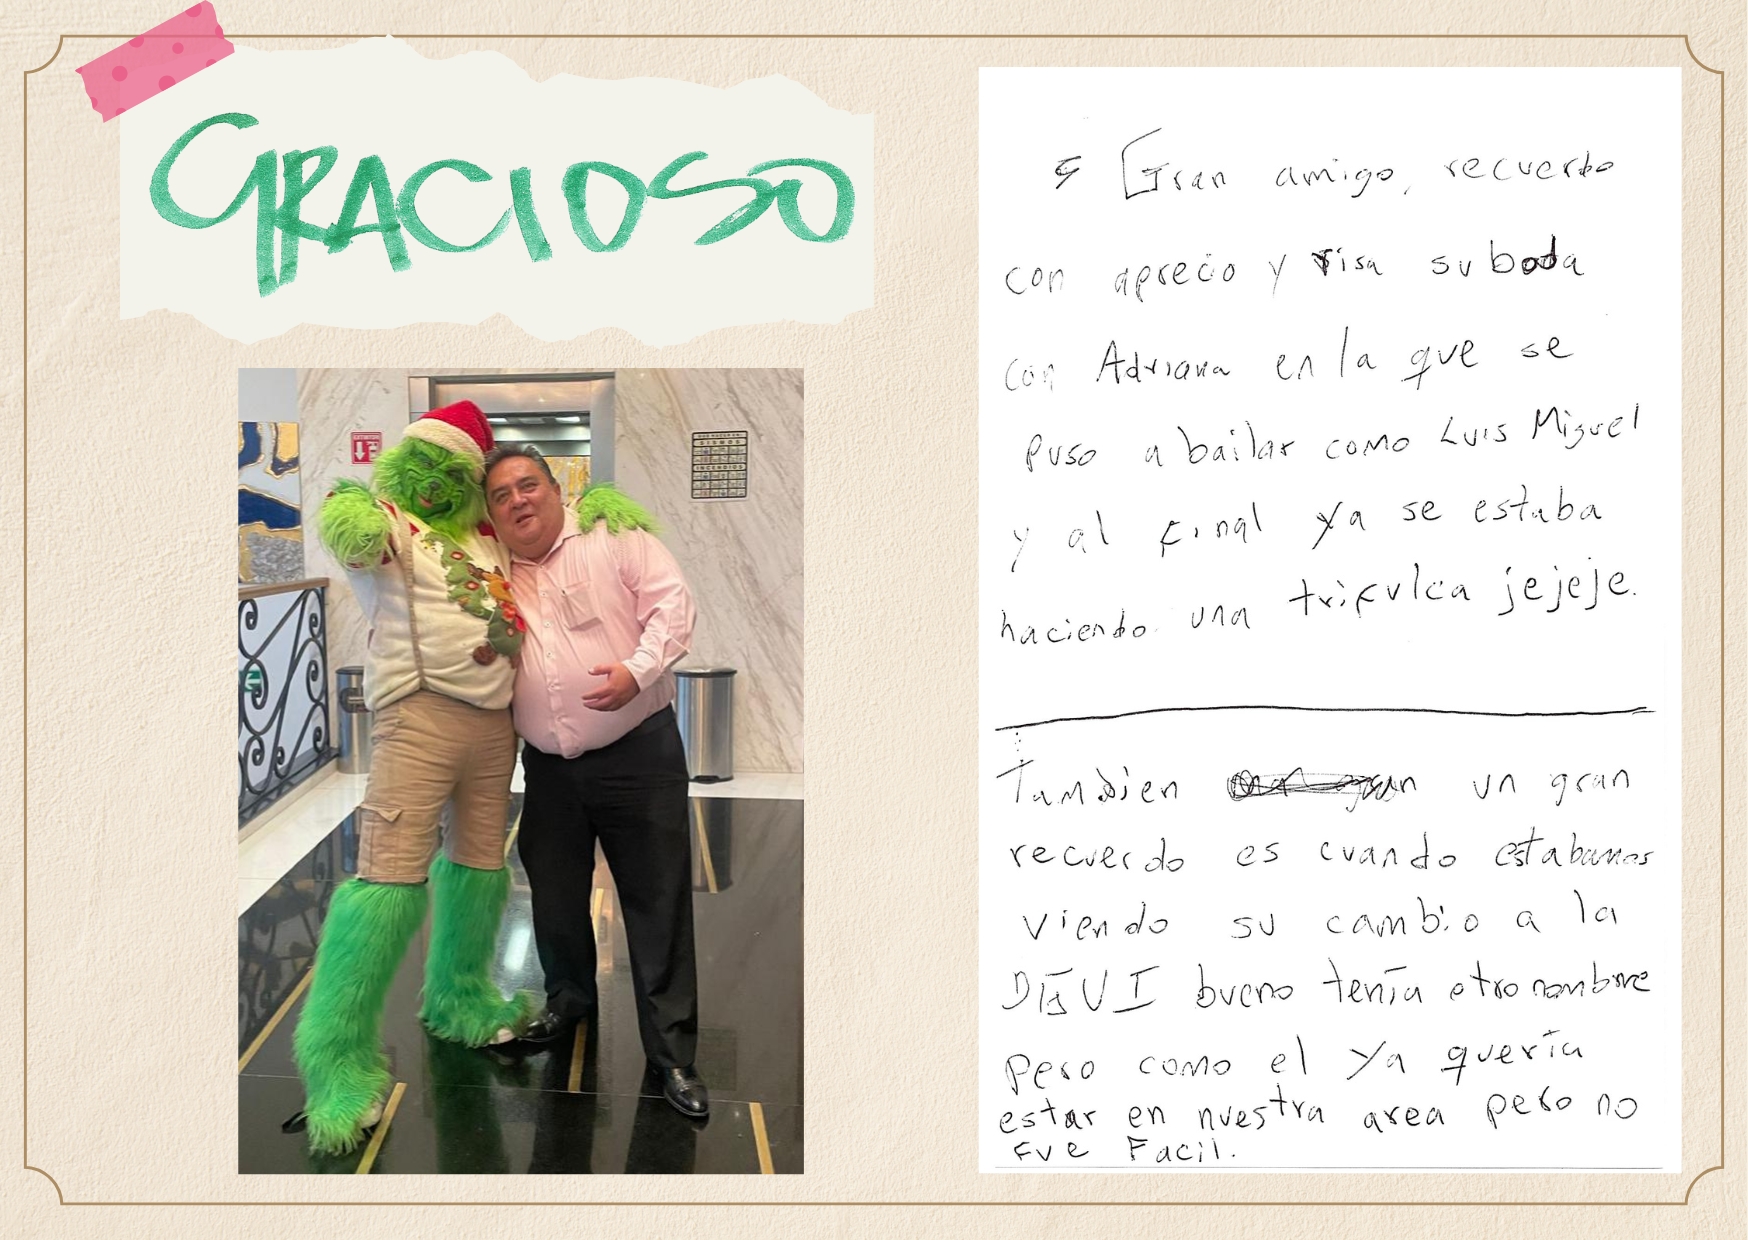 GRACIOSO
Gran amigo, recuerdo
con aprecio y risa su boda
con Adriana en la que se
puso a bailar como Luis Miguel
y al final ya se estaba
haciendo una trifulca jejeje.
Tambien un gran
recuerdo es cuando estabamos
viendo su cambio a la
bueno tenía otro nombre
pero como el ya quería
estar en nuestra area pero no
fue Facil.
SISMOS
INCENDIOS